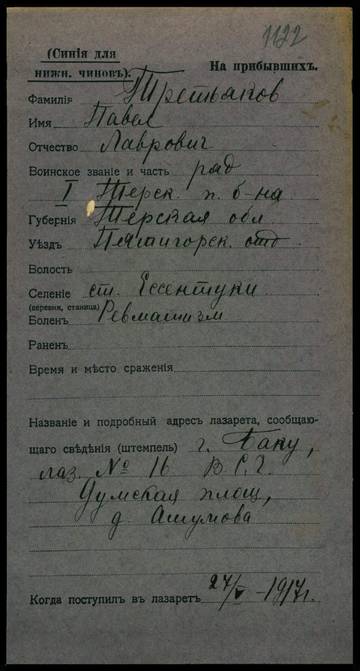 1122
(Синія для
нижн. чиновъ).
На прибывшихъ.
Фамилія Третьяков
Имя Павел
Отчество Лаврович
Воинское званіе и часть ряд
I Терск. п. б-на
Губернія Терская обл
Уѣздъ Пятигорск. отд
Волость
Селеніе ст. Ессентуки
(деревня, станица)
Боленъ Ревматизм
Раненъ
Время и мѣсто сраженія
Названіе и подробный адресъ лазарета, сообщаю-
щаго свѣдѣнія (штемпель) г. Баку,
лаз. № 16 В.С.Г.
Думская площ,
д. Ашумова
Когда поступил въ лазаретъ 27/V -1917г.